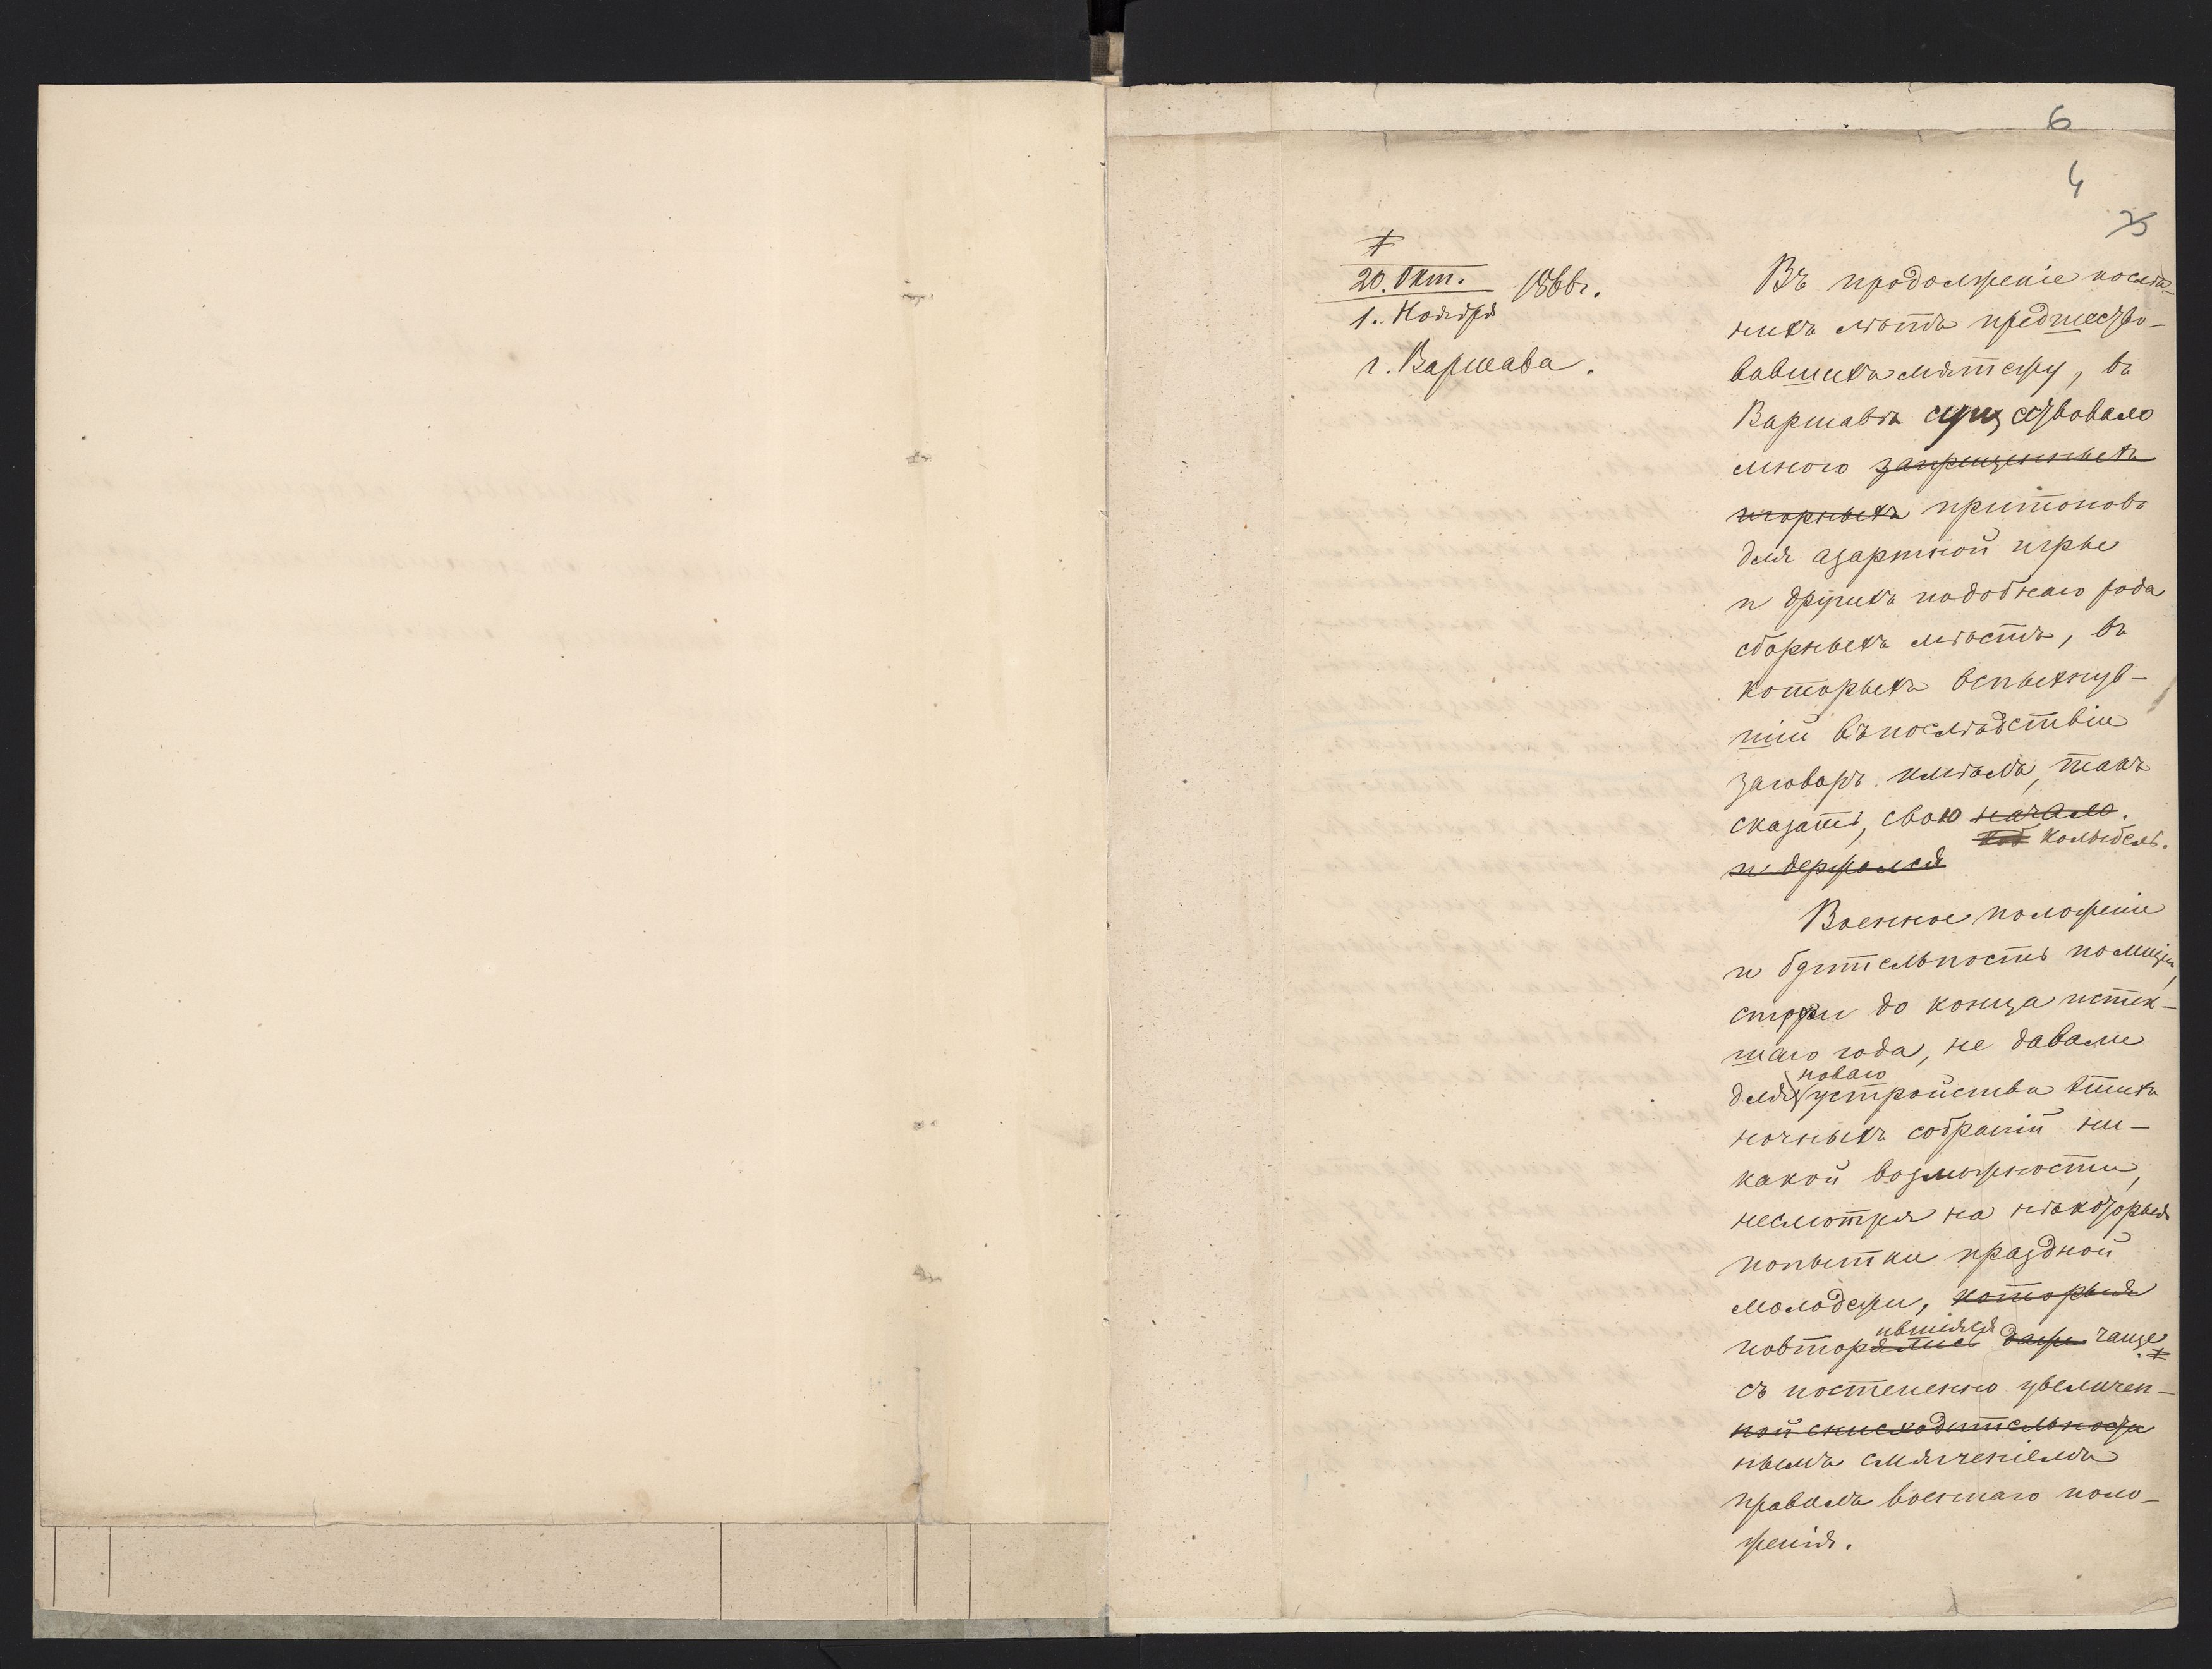 6
4
20. Окт. 1866г.
1. Ноября
г. Варшава.
Въ продолженіе послѣд-
нихъ лѣтъ предшество-
вавшихъ мятежу, въ
Варшавѣ существовало
много запрещенныхъ
игорныхъ притоновъ
для азартной игры
и другихъ подобнаго рода
сборныхъ мѣстъ, въ
которыхъ вспыхнув-
шій въпослѣдствіи
заговоръ имѣлъ, такъ
сказать, свою начало.
кол колыбель.
и держался
Военное положеніе
и бдительность полиціи,
до конца истек-
шаго года, не давали
новаго
для устройства этихъ
ночныхъ собраній ни-
какой возможности,
несмотря на нѣкоторыя
попытки праздной
молодежи, которыя
ившіяся
повторялись даже чаще
съ постепенно увеличен-
ной снисходительности
нымъ смягченіемъ
правилъ военнаго поло-
женія.